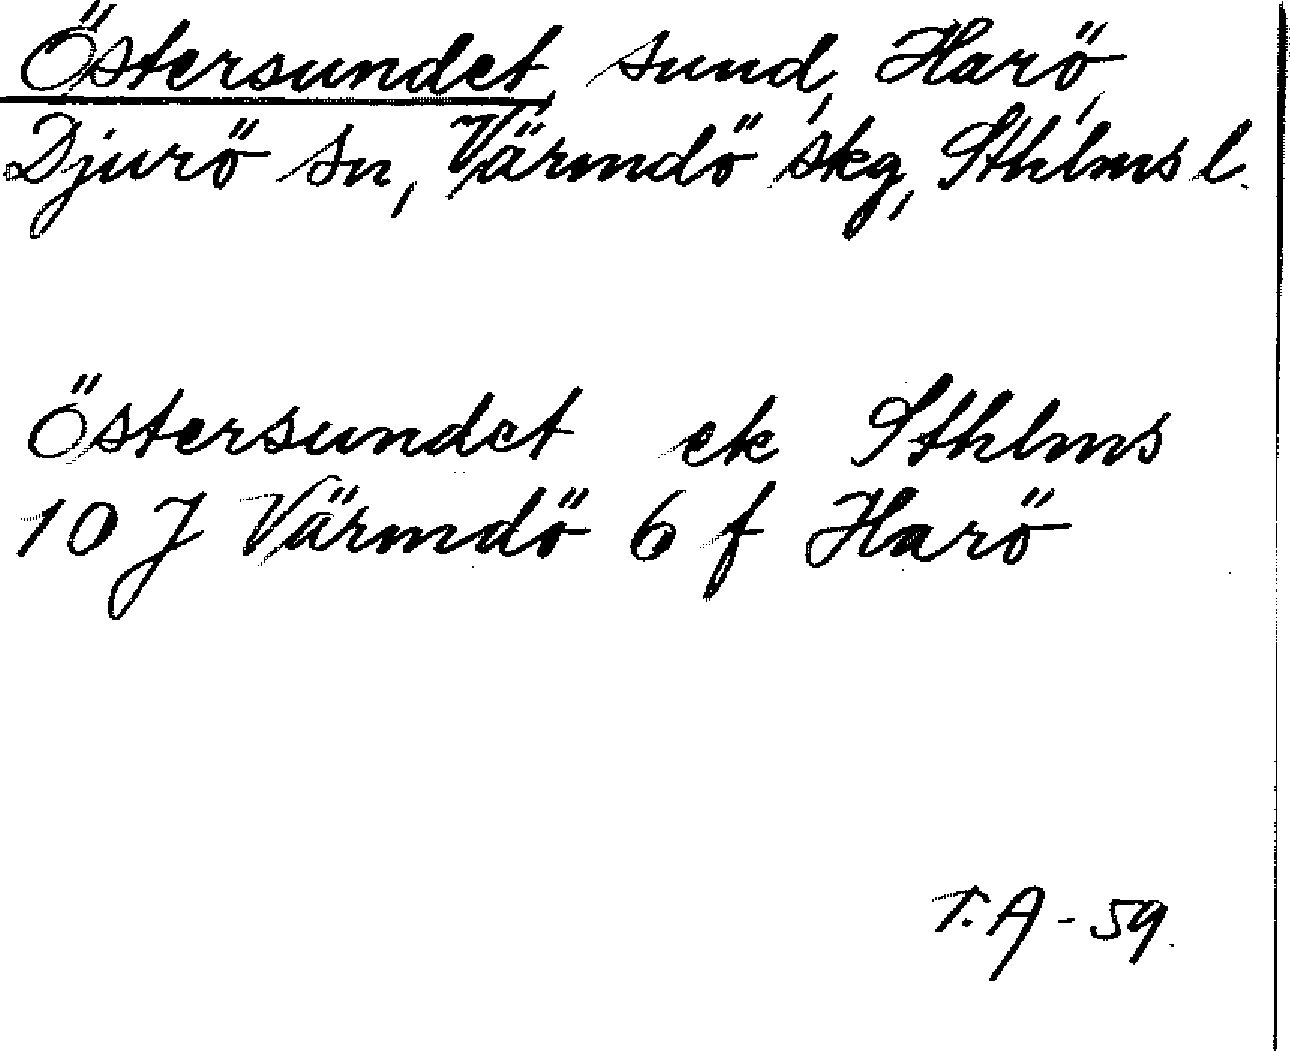 Östersundet, sund, Harö,
Djurö sn, Värmdö skg, Sthlms l.
Östersundet ek Sthlms
10 J Värmdö 6 f Harö
T.A-59.